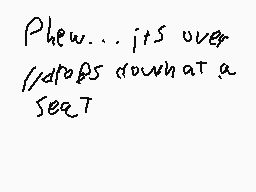 Phew... its over
//drops down at a
seat